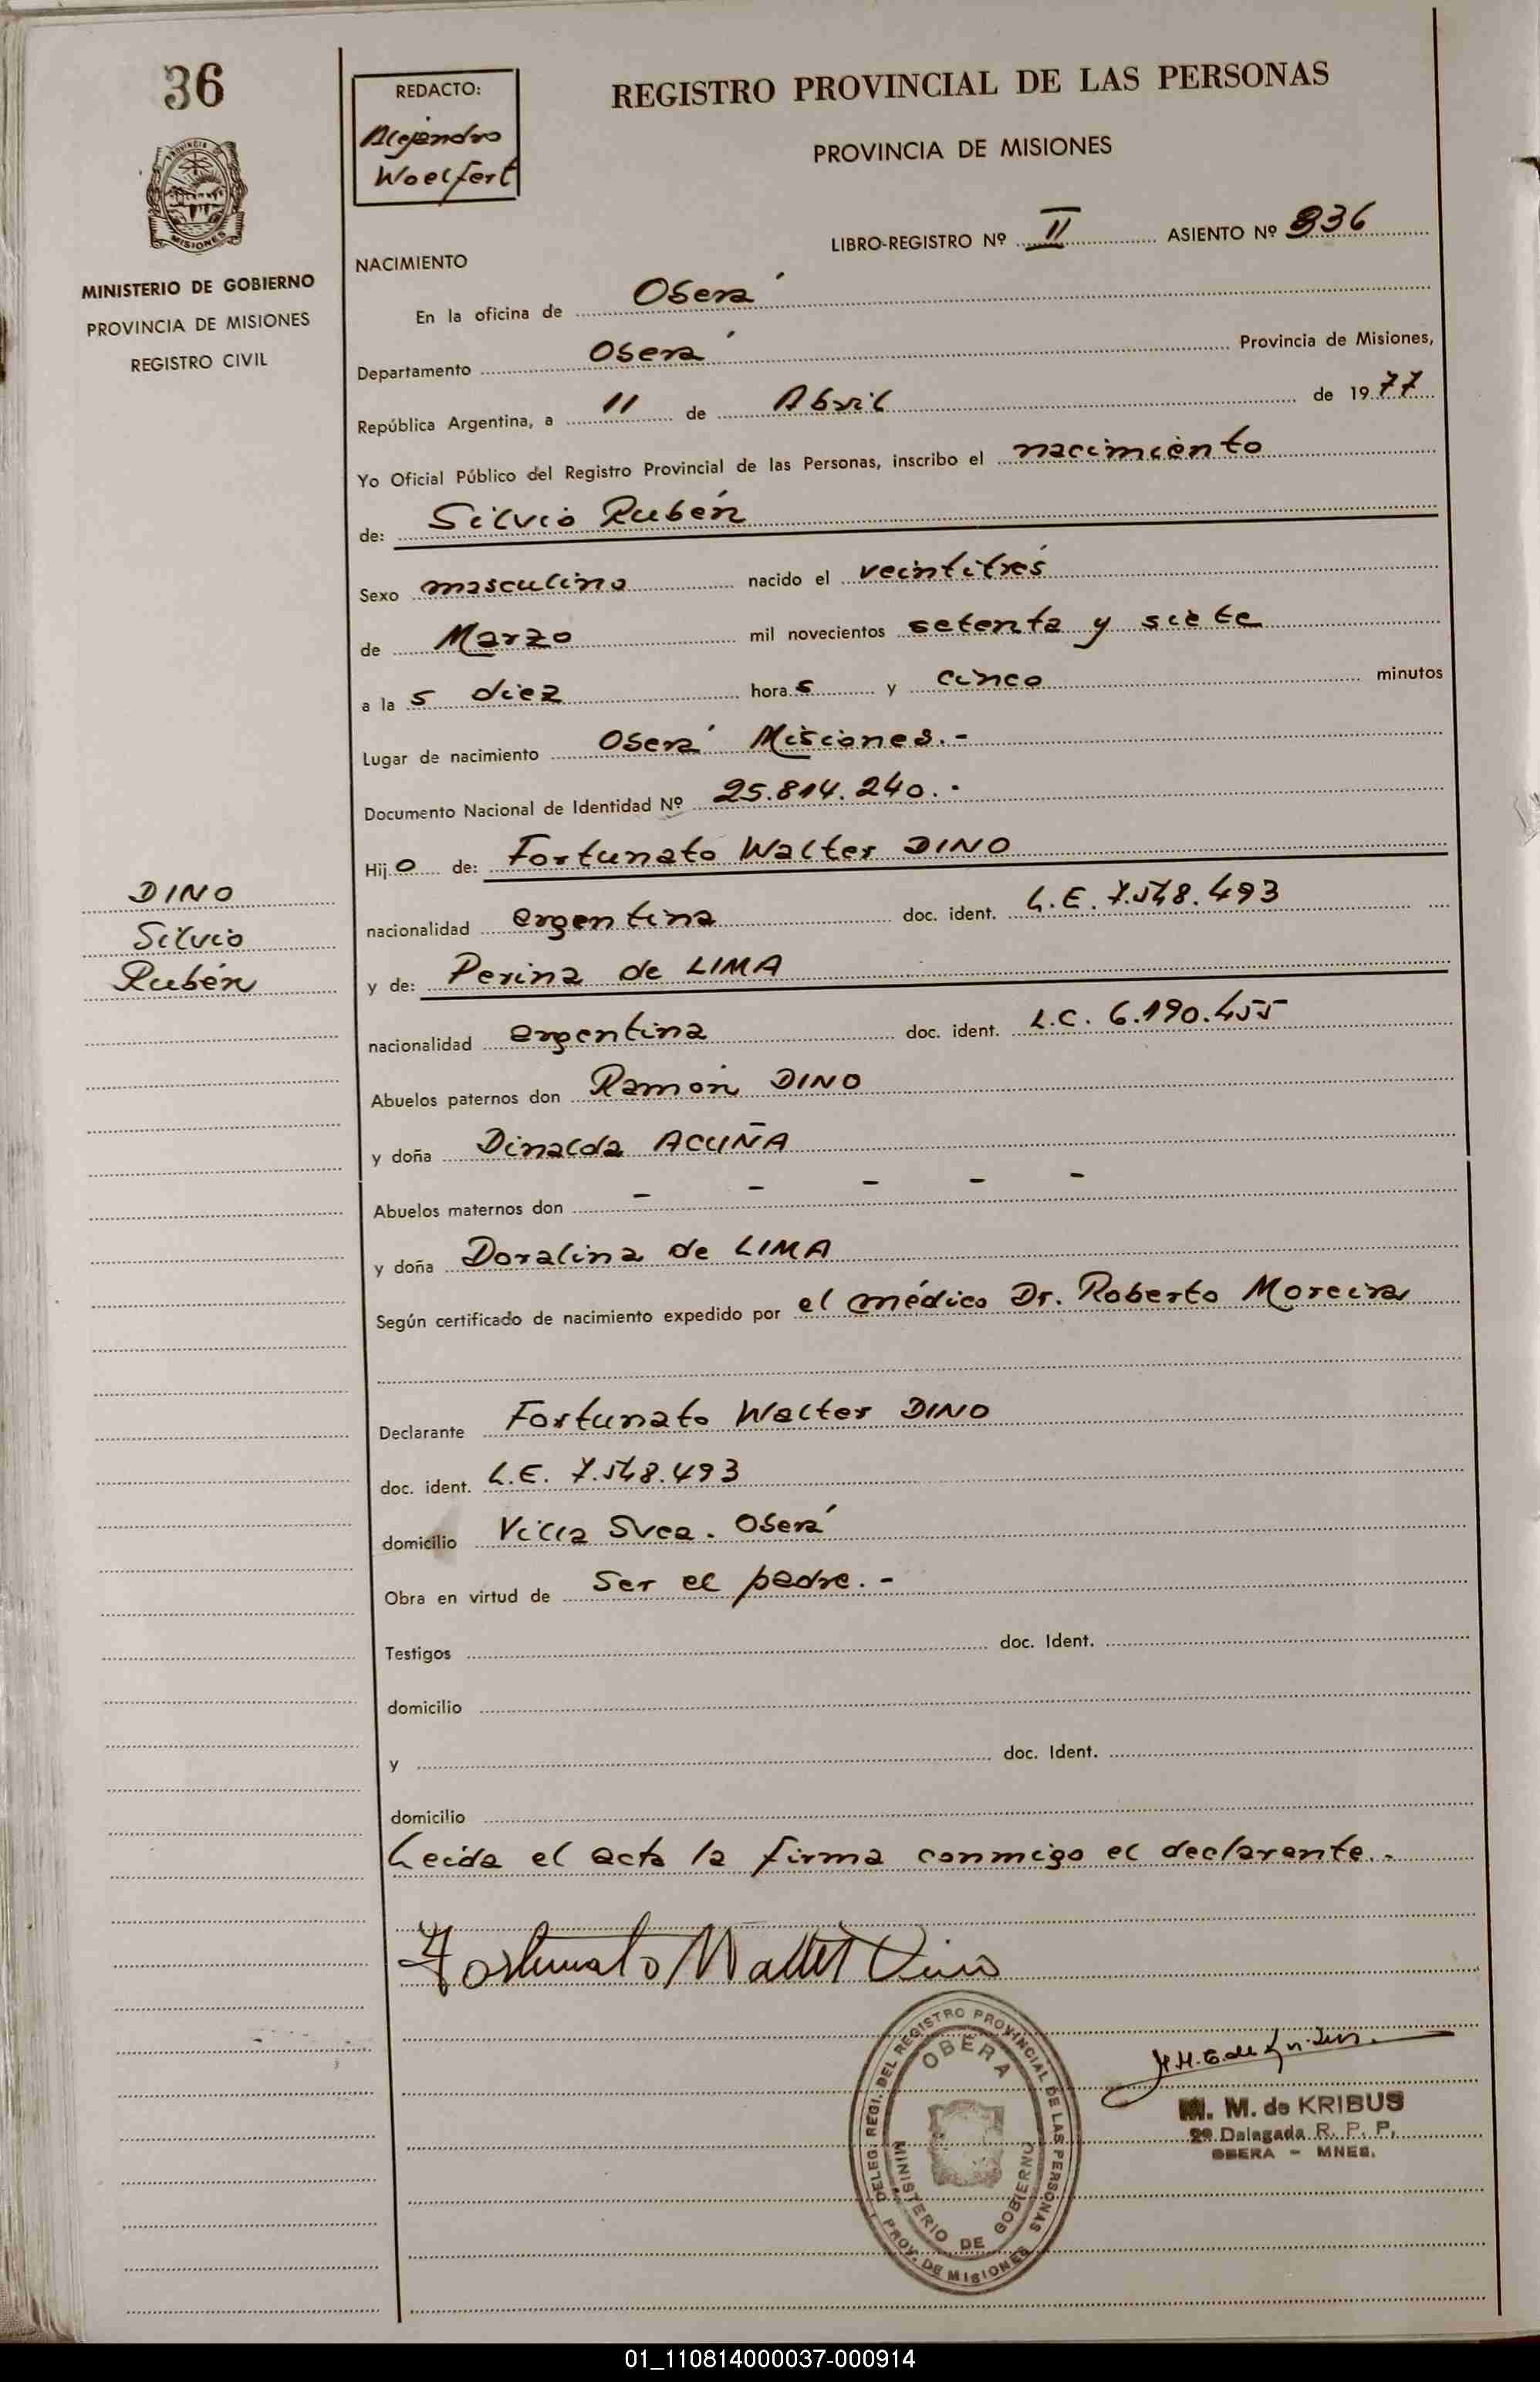 36
PROVINCIA DE
MISIONES
MINISTERIO DE GOBIERNO
PROVINCIA DE MISIONES
REGISTRO CIVIL
REDACTO:
Alejandro
Woelfert
REGISTRO PROVINCIAL DE LAS PERSONAS
PROVINCIA DE MISIONES
LIBRO-REGISTRO Nº II ASIENTO Nº 336
NACIMIENTO
En la oficina de Oberá
Departamento Oberá Provincia de Misiones,
República Argentina, a 11 de Abril de 1977
Yo Oficial Público del Registro Provincial de las Personas, inscribo el nacimiento
de: Silvio Rubén
Sexo masculino nacido el veintitrés
de Marzo mil novecientos setenta y siete
a la s diez hora s y cinco minutos
Lugar de nacimiento Oberá Misiones.-
Documento Nacional de Identidad Nº 25.814.240.-
Hij o de: Fortunato Walter DINO
DINO
Silvio
Rubén
nacionalidad argentina doc. ident. L.E. 7.548.493
y de: Perina de LIMA
nacionalidad argentina doc. ident. L.C. 6.190.455
Abuelos paternos don Ramón DINO
y doña Dinalda ACUÑA
Abuelos maternos don - - - - -
y doña Doralina de LIMA
Según certificado de nacimiento expedido por el médico Dr. Roberto Moreira
Declarante Fortunato Walter DINO
doc. ident. L.E. 7.548.493
domicilio Villa Svea. Oberá
Obra en virtud de ser el padre.-
Testigos doc. Ident.
domicilio
y doc. Ident.
domicilio
Leida el acta la firma conmigo el declarante.-
Fortunato Walter Dino
DELEG. REGI. DEL REGISTRO PROVINCIAL DE LAS PERSONAS
OBERA
MINISTERIO DE GOBIERNO
PROV. DE MISIONES
M. M. de KRIBUS
2º Delegada R. P. P.
OBERA - MNES.
01_110814000037-000914